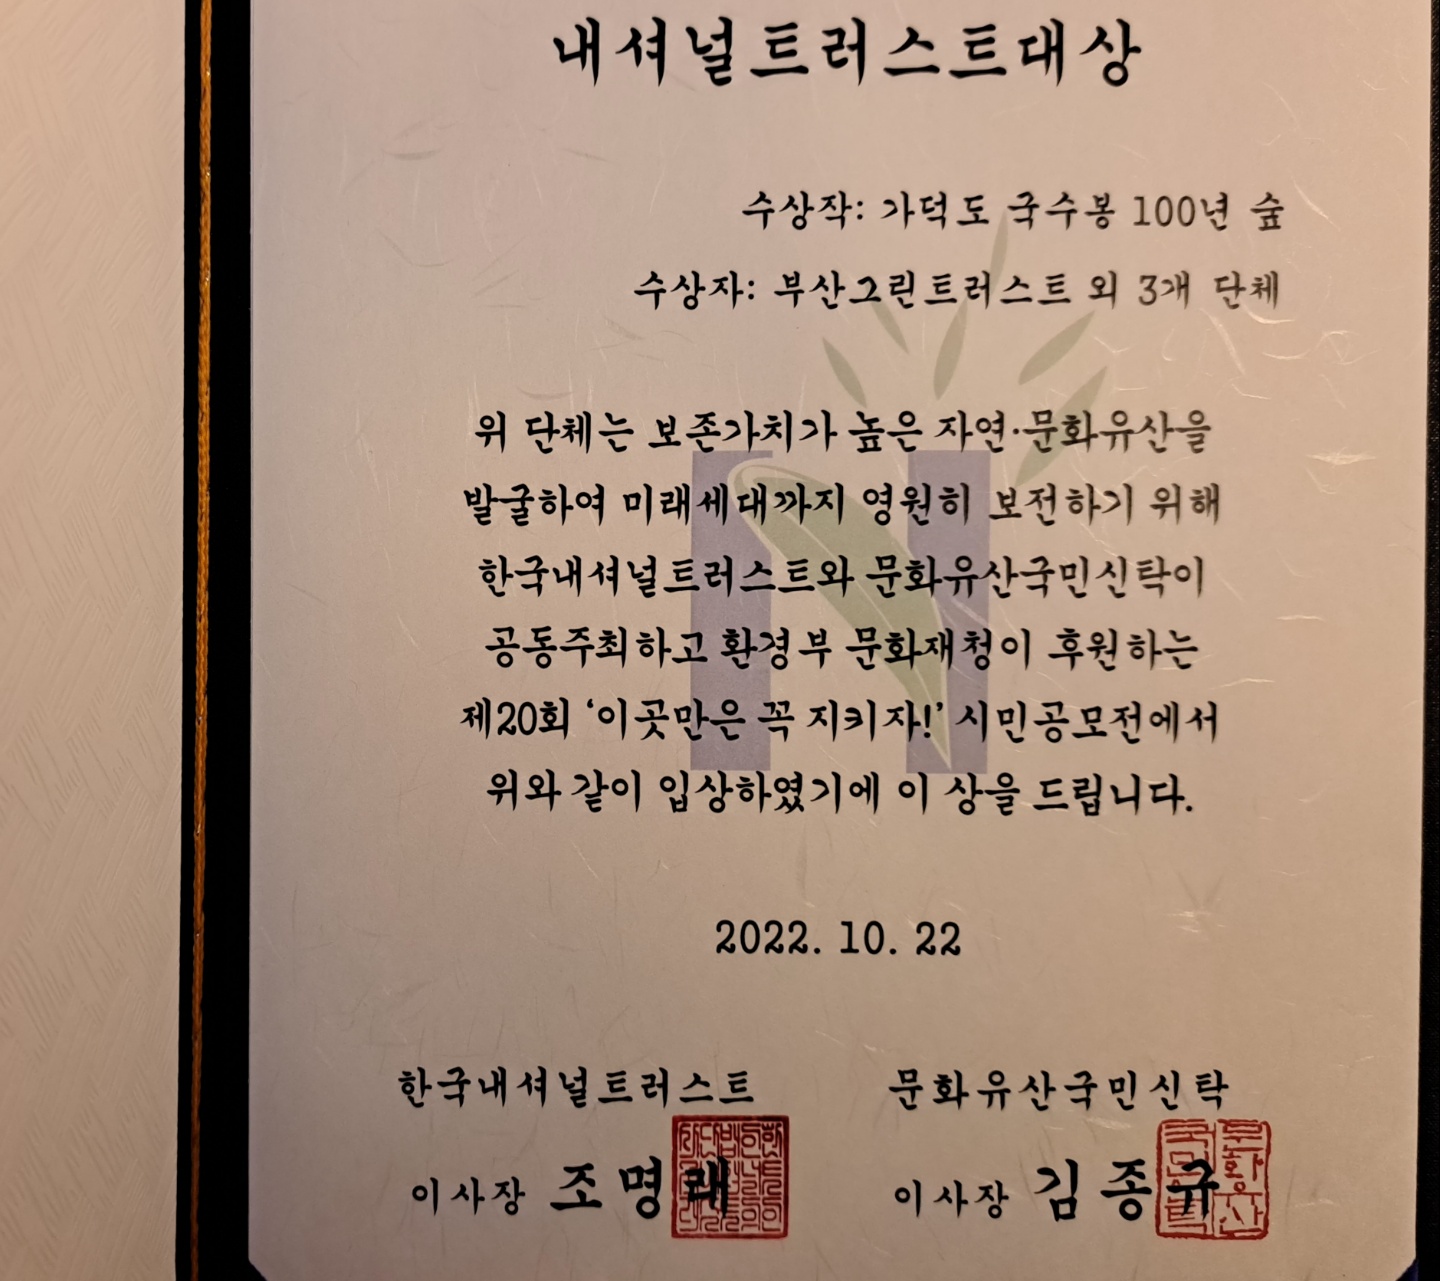 내셔널트러스트대상
수상작: 가덕도 국수봉 100년 숲
수상자: 부산그린트러스트 외 3개 단체
위 단체는 보존가치가 높은 자연·문화유산을
발굴하여 미래세대까지 영원히 보전하기 위해
한국내셔널트러스트와 문화유산국민신탁이
공동주최하고 환경부 문화재청이 후원하는
제20회 ‘이곳만은 꼭 지키자!’ 시민공모전에서
위와 같이 입상하였기에 이 상을 드립니다.
2022. 10. 22
한국내셔널트러스트
이사장 조명래
문화유산국민신탁
이사장 김종규